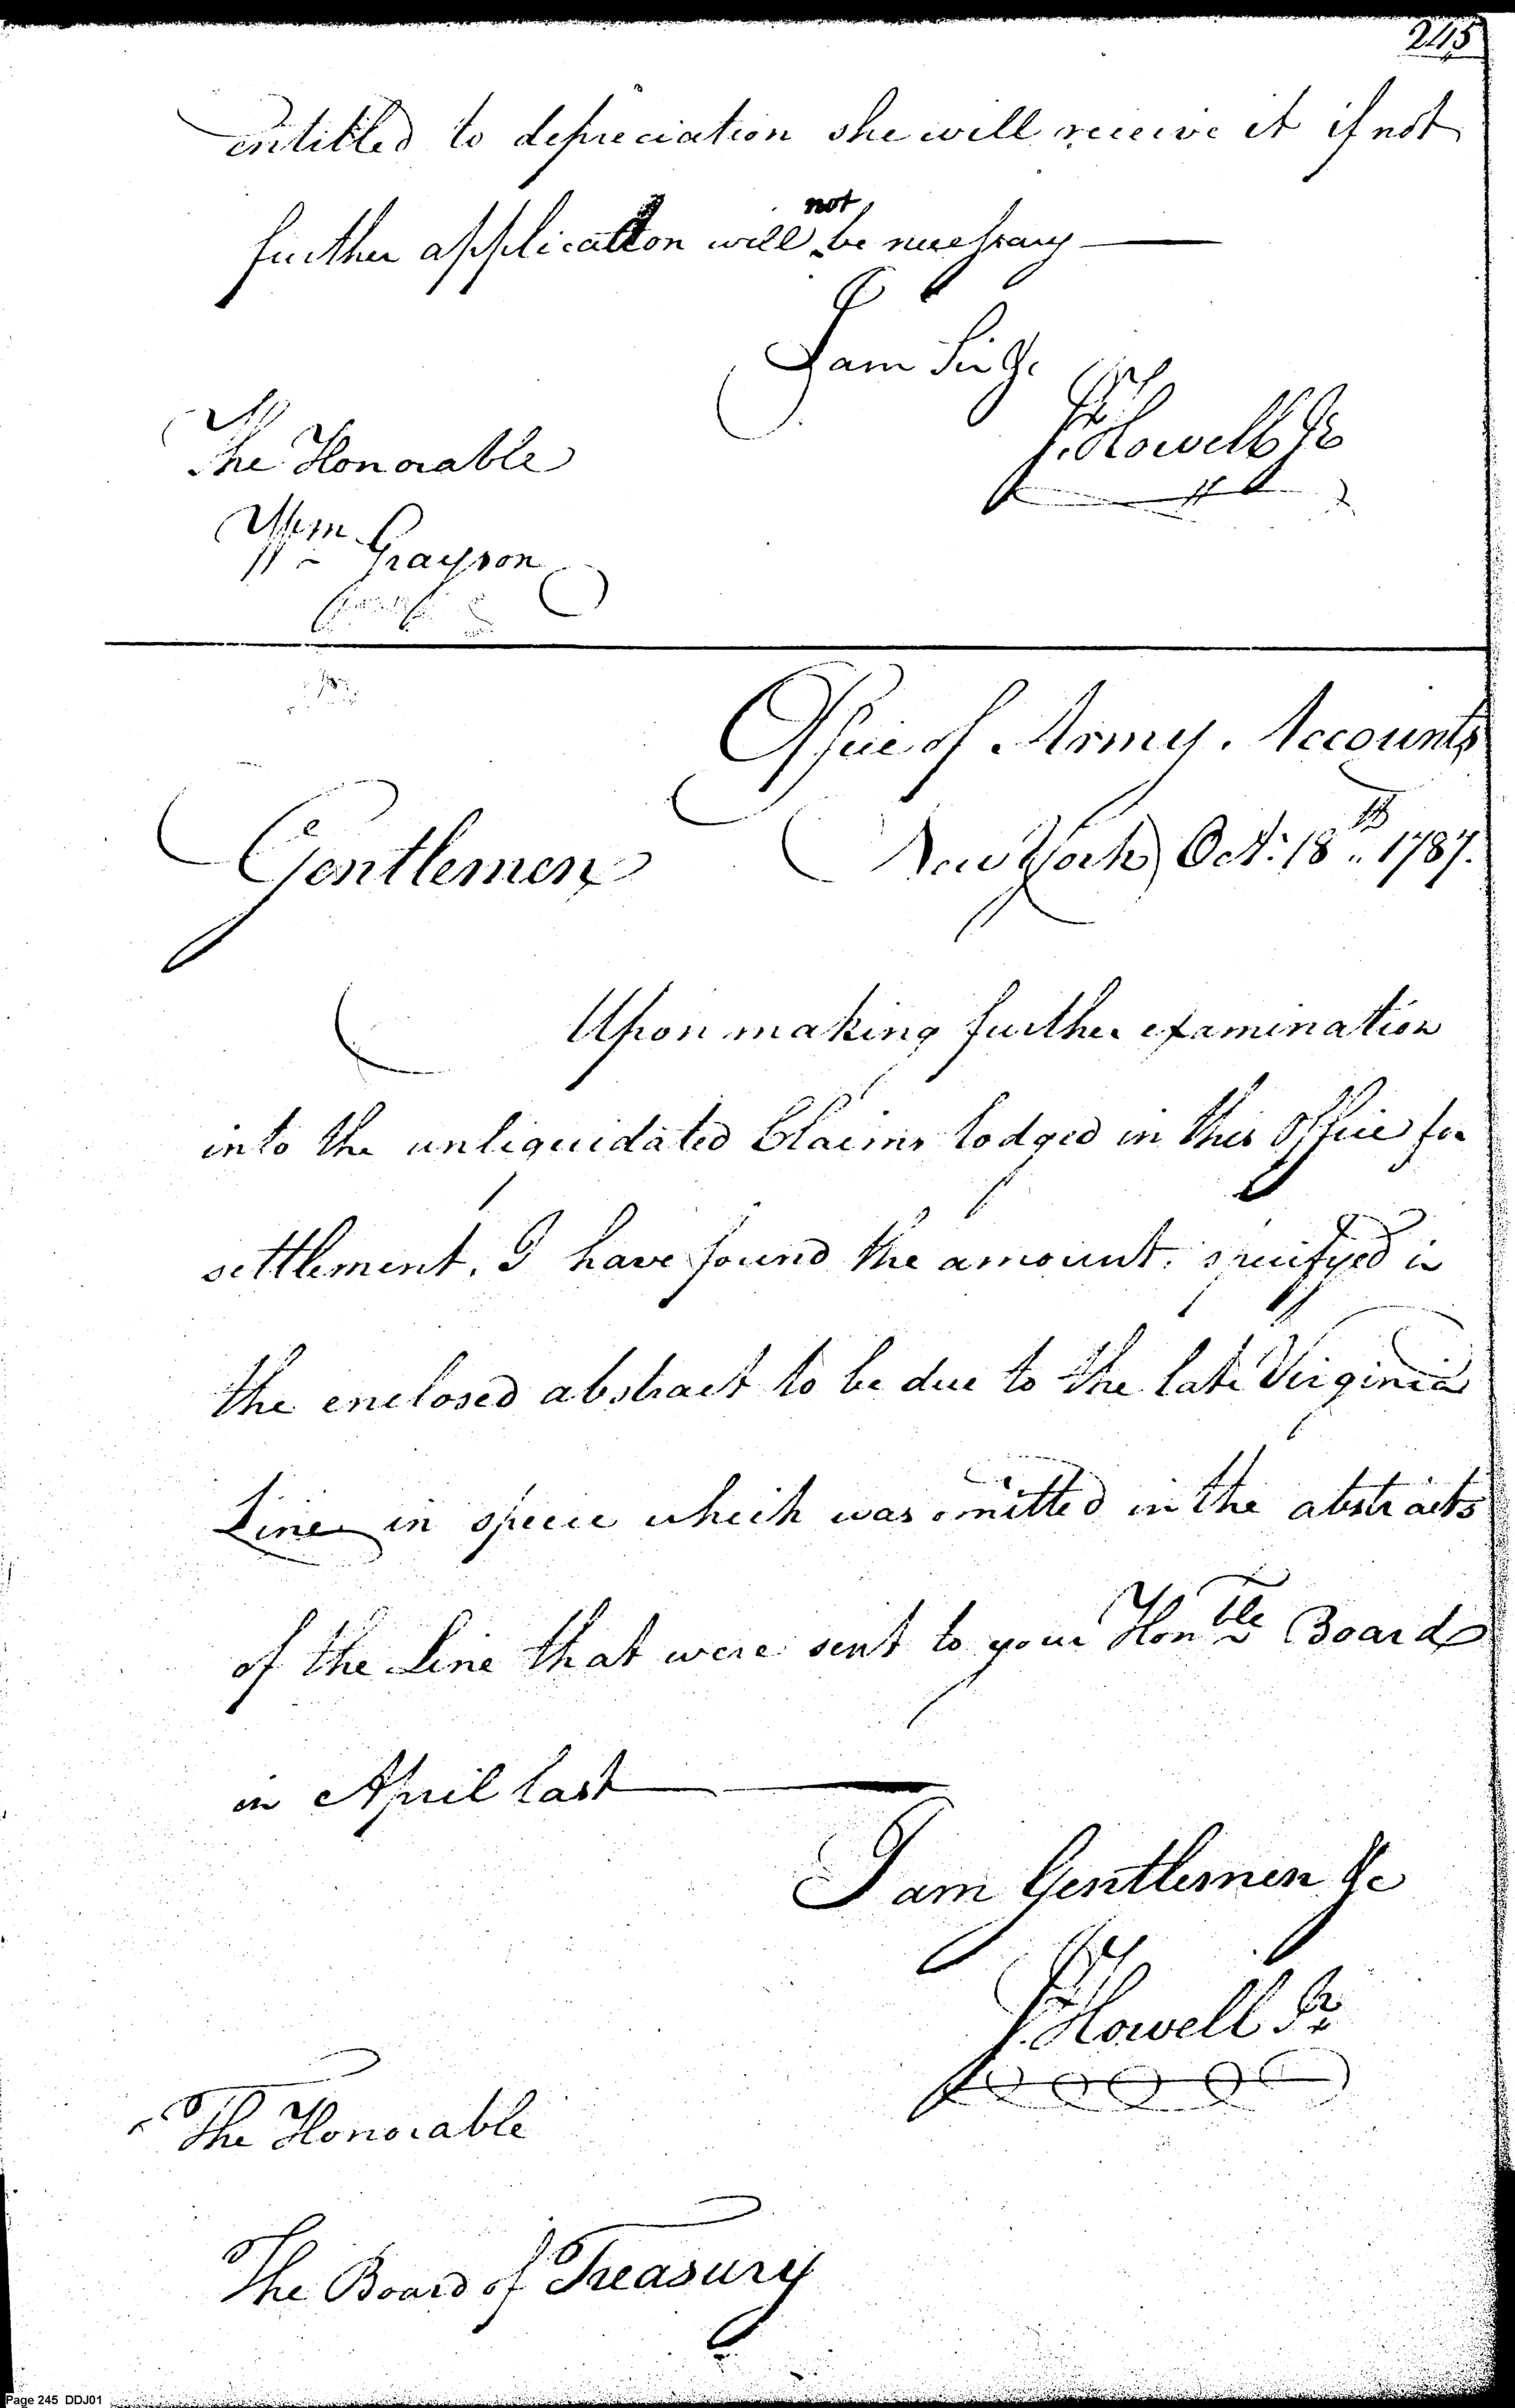 245
entitled to depreciation she will receive it if not
further application will not be necessary
I am Sir &c
J. Howell Jr
The Honorable
Wm Grayson
Office of Army Accounts
New York Oct: 18th 1787.
Gentlemen
Upon making further examination
into the unliquidated Claims lodged in this office for
settlement, I have found the amount specifyed in
the enclosed abstract to be due to the late Virginia
Line in specie which was omitted in the abstracts
of the Line that were sent to your Honble Board
in April last
I am Gentlemen &c
J. Howell Jr
The Honorable
The Board of Treasury
Page 245 DDJ01